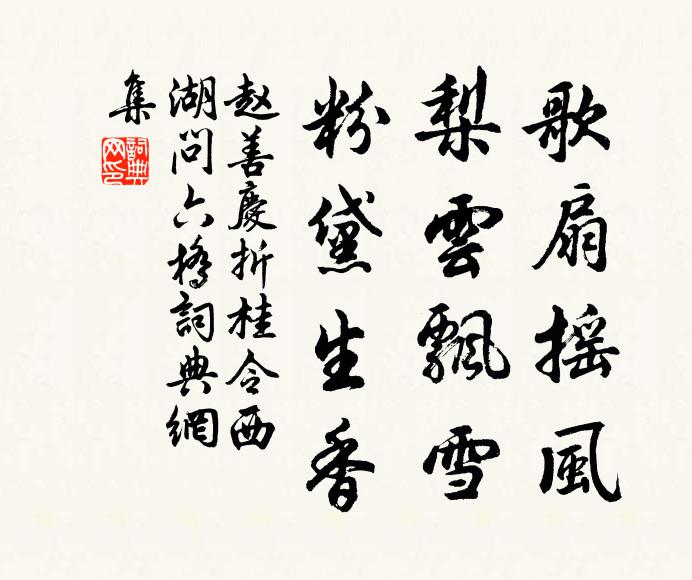 歌扇摇風
梨雲飄雪
粉黛生香
赵善慶折桂令西
湖問六橋詞典網
集
詞典網印